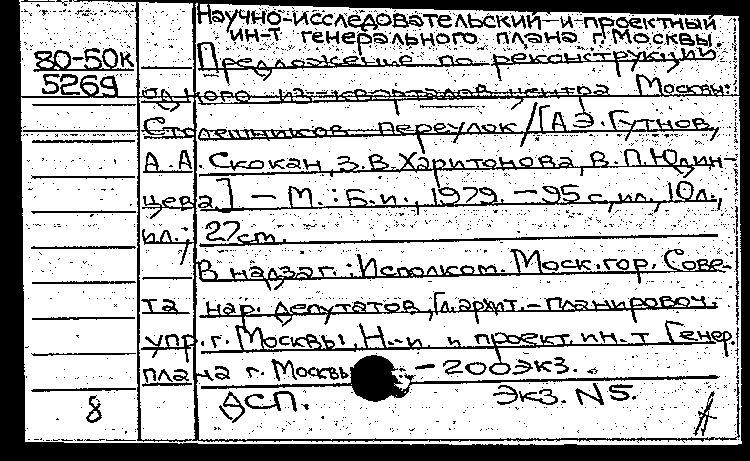 Научно-исследовательский и проектный
ин-т генерального плана г. Москвы.
80-50к
5269
Предложение по реконструкции
одного из кварталов центра Москвы:
Столешников переулок/[А.Э. Гутнов,
А.А. Скокан, З.В. Харитонова, В.П. Юдин-
цева] - М.: Б.и., 1979. - 95 с., ил., 10 л.,
ил.; 27 см.
В надзаг.: Исполком. Моск. гор. Сове-
та нар. депутатов, Гл. архит.-планировоч.
упр. г. Москвы, Н.-и. и проект. ин-т Генер.
плана г. Москвы - 200 экз.
8
ДСП. Экз. N5.